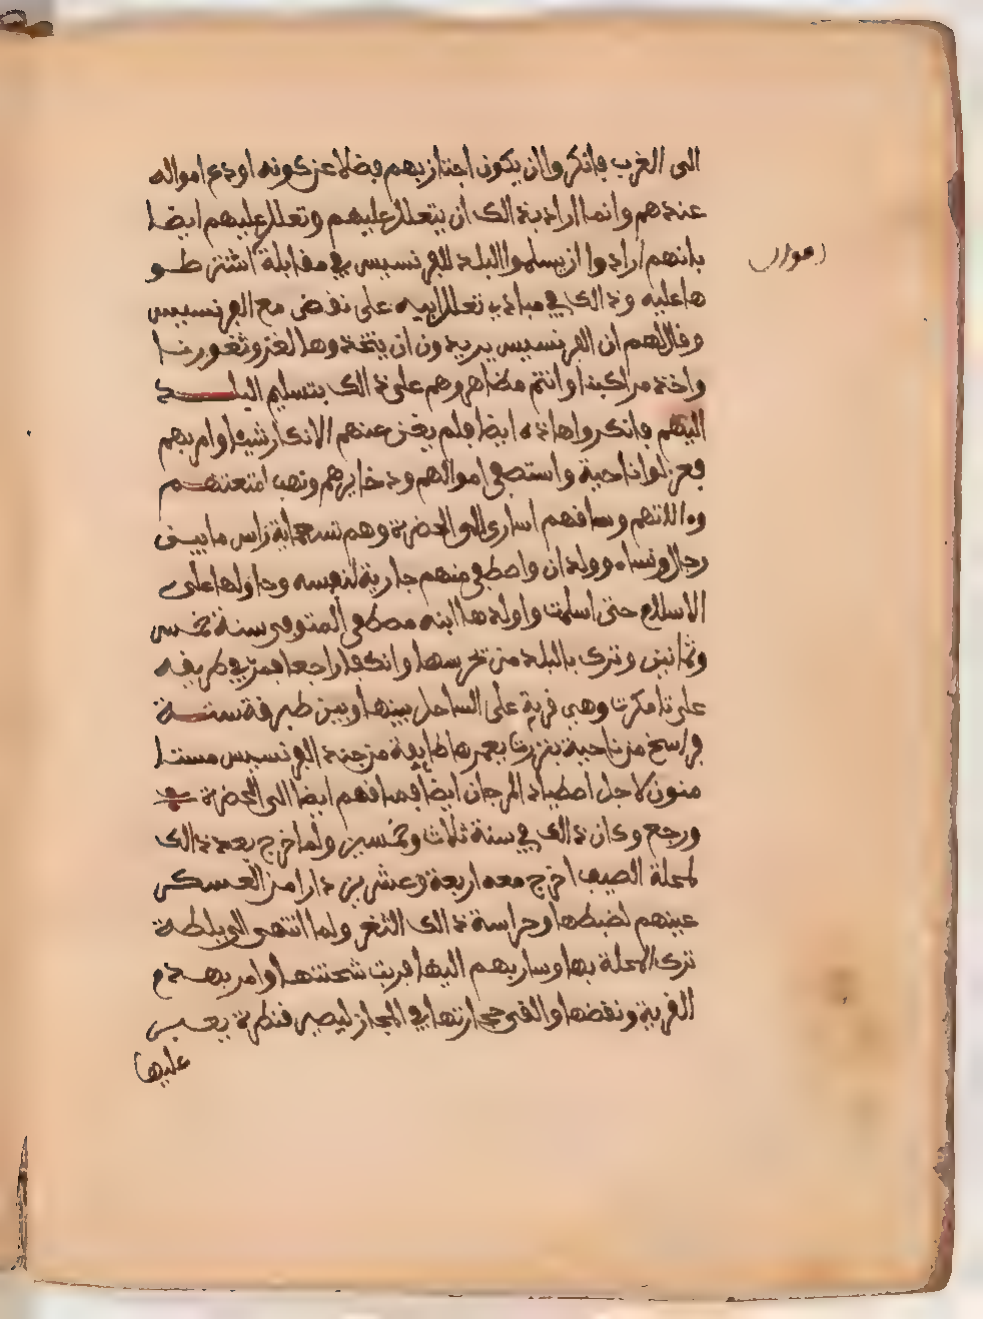 الى الغرب فانكروا ان يكون اجتاز بهم فضلا عن كونه اودع امواله
عندهم وانما اراد بذالك ان يتعلل عليهم وتعلل عليهم ايضا
بانهم ارادوا ان يسلموا البلد للفرنسيس في مقابلة اشترطو
اموال
ها عليه وذالك في مبادي تعلل ابيه على نقض مع الفرنسيس
وقال لهم ان الفرنسيس يريدون ان يتخذوها لغزو ثغورنا
واخذ مراكبنا وانتم مظاهروهم على ذالك بتسليم البلد
اليهم فانكروا هاذه ايضا فلم يغن عنهم الانكار شيئا وامر بهم
فعزلوا ناحية واستصفى اموالهم وذخايرهم ونهب امتعتهم
وءالاتهم وساقهم اسارى الى الحضرة وهم تسعماية راس ما بين
رجال ونساء وولدان واصطفى منهم جارية لنفسه وحاولها على
الاسلام حتى اسلمت واولدها ابنه مصطفى المتوفى سنة خمس
وثمانين وترك بالبلد من يحرسها وانكفا راجعا فمر في طريقه
على تامكرت وهي قرية على الساحل بينها وبين طبرقة ستة
فراسخ من ناحية بنزرت يعمرها طايفة من جند الفرنسيس مستا
منون لاجل اصطياد المرجان ايضا فساقهم ايضا الى الحضرة
ورجع وكان ذالك في سنة ثلاث وخمسين ولما خرج بعد ذالك
لمحلة الصيف اخرج معه اربعة وعشرين دارا من العسكر
عينهم لضبطها وحراسة ذالك الثغر ولما انتهى الى بلطة
ترك المحلة بها وسار بهم اليها فرتب شحنتها وامر بهدم
القرية ونقضها والقى حجارتها في المجاز ليصير قنطرة يعبر
عليها